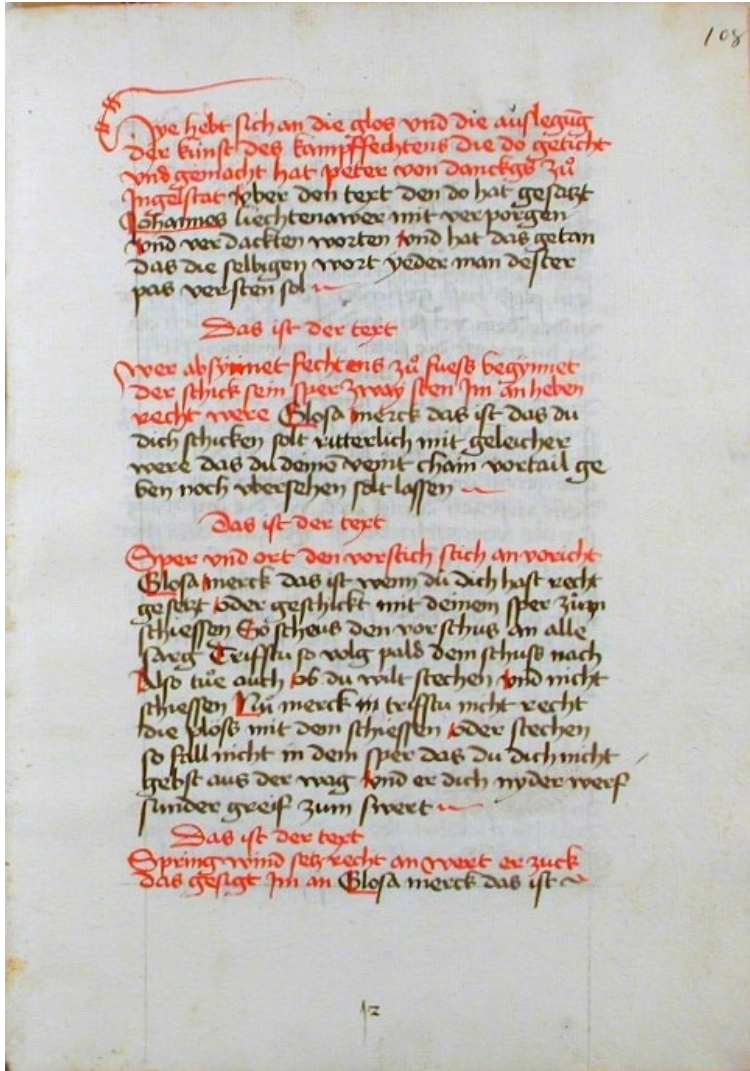 108
Hye hebt sich an die glos vnd die auslegūg
der kunst des kampffechtens die do geticht
vnd gemacht hat peter von danckgs zů
Ingelstat vber den text den do hat gesatzt
Johannes liechtenawer mit verporgen
vnd verdackten worten vnd hat das getan
das die selbigen wort yeder man dester
pas versten sol
Das ist der text
Wer absynnet Fechtens zů fuess begynnet
der schick sein sper zway sten Im an heben
recht were Glosa merck das ist das du
dich schicken solt ritterlich mit geleicher
were das du deinē veint chain vortail ge
ben noch vbersehen solt lassen
Das ist der text
Sper vnd ort den vorstich stich an voricht
Glosa merck das ist wenn du dich hast recht
gesetzt oder geschickt mit deinem sper zům
schiessen So scheus den vorschus an alle
sarg Trifftu so volg pald dem schuss nach
Also tůe auch ob du wilt stechen vnd nicht
schiessen Nů merck trifftu nicht recht
die plöss mit dem schiessen oder stechen
so fall nicht in dem sper das du dich nicht
gebst aus der wag vnd er dich nyder werf
sunder greif zum swert
Das ist der text
Spring wind setz recht an Wert er zuck
das gesigt Im an Glosa merck das ist